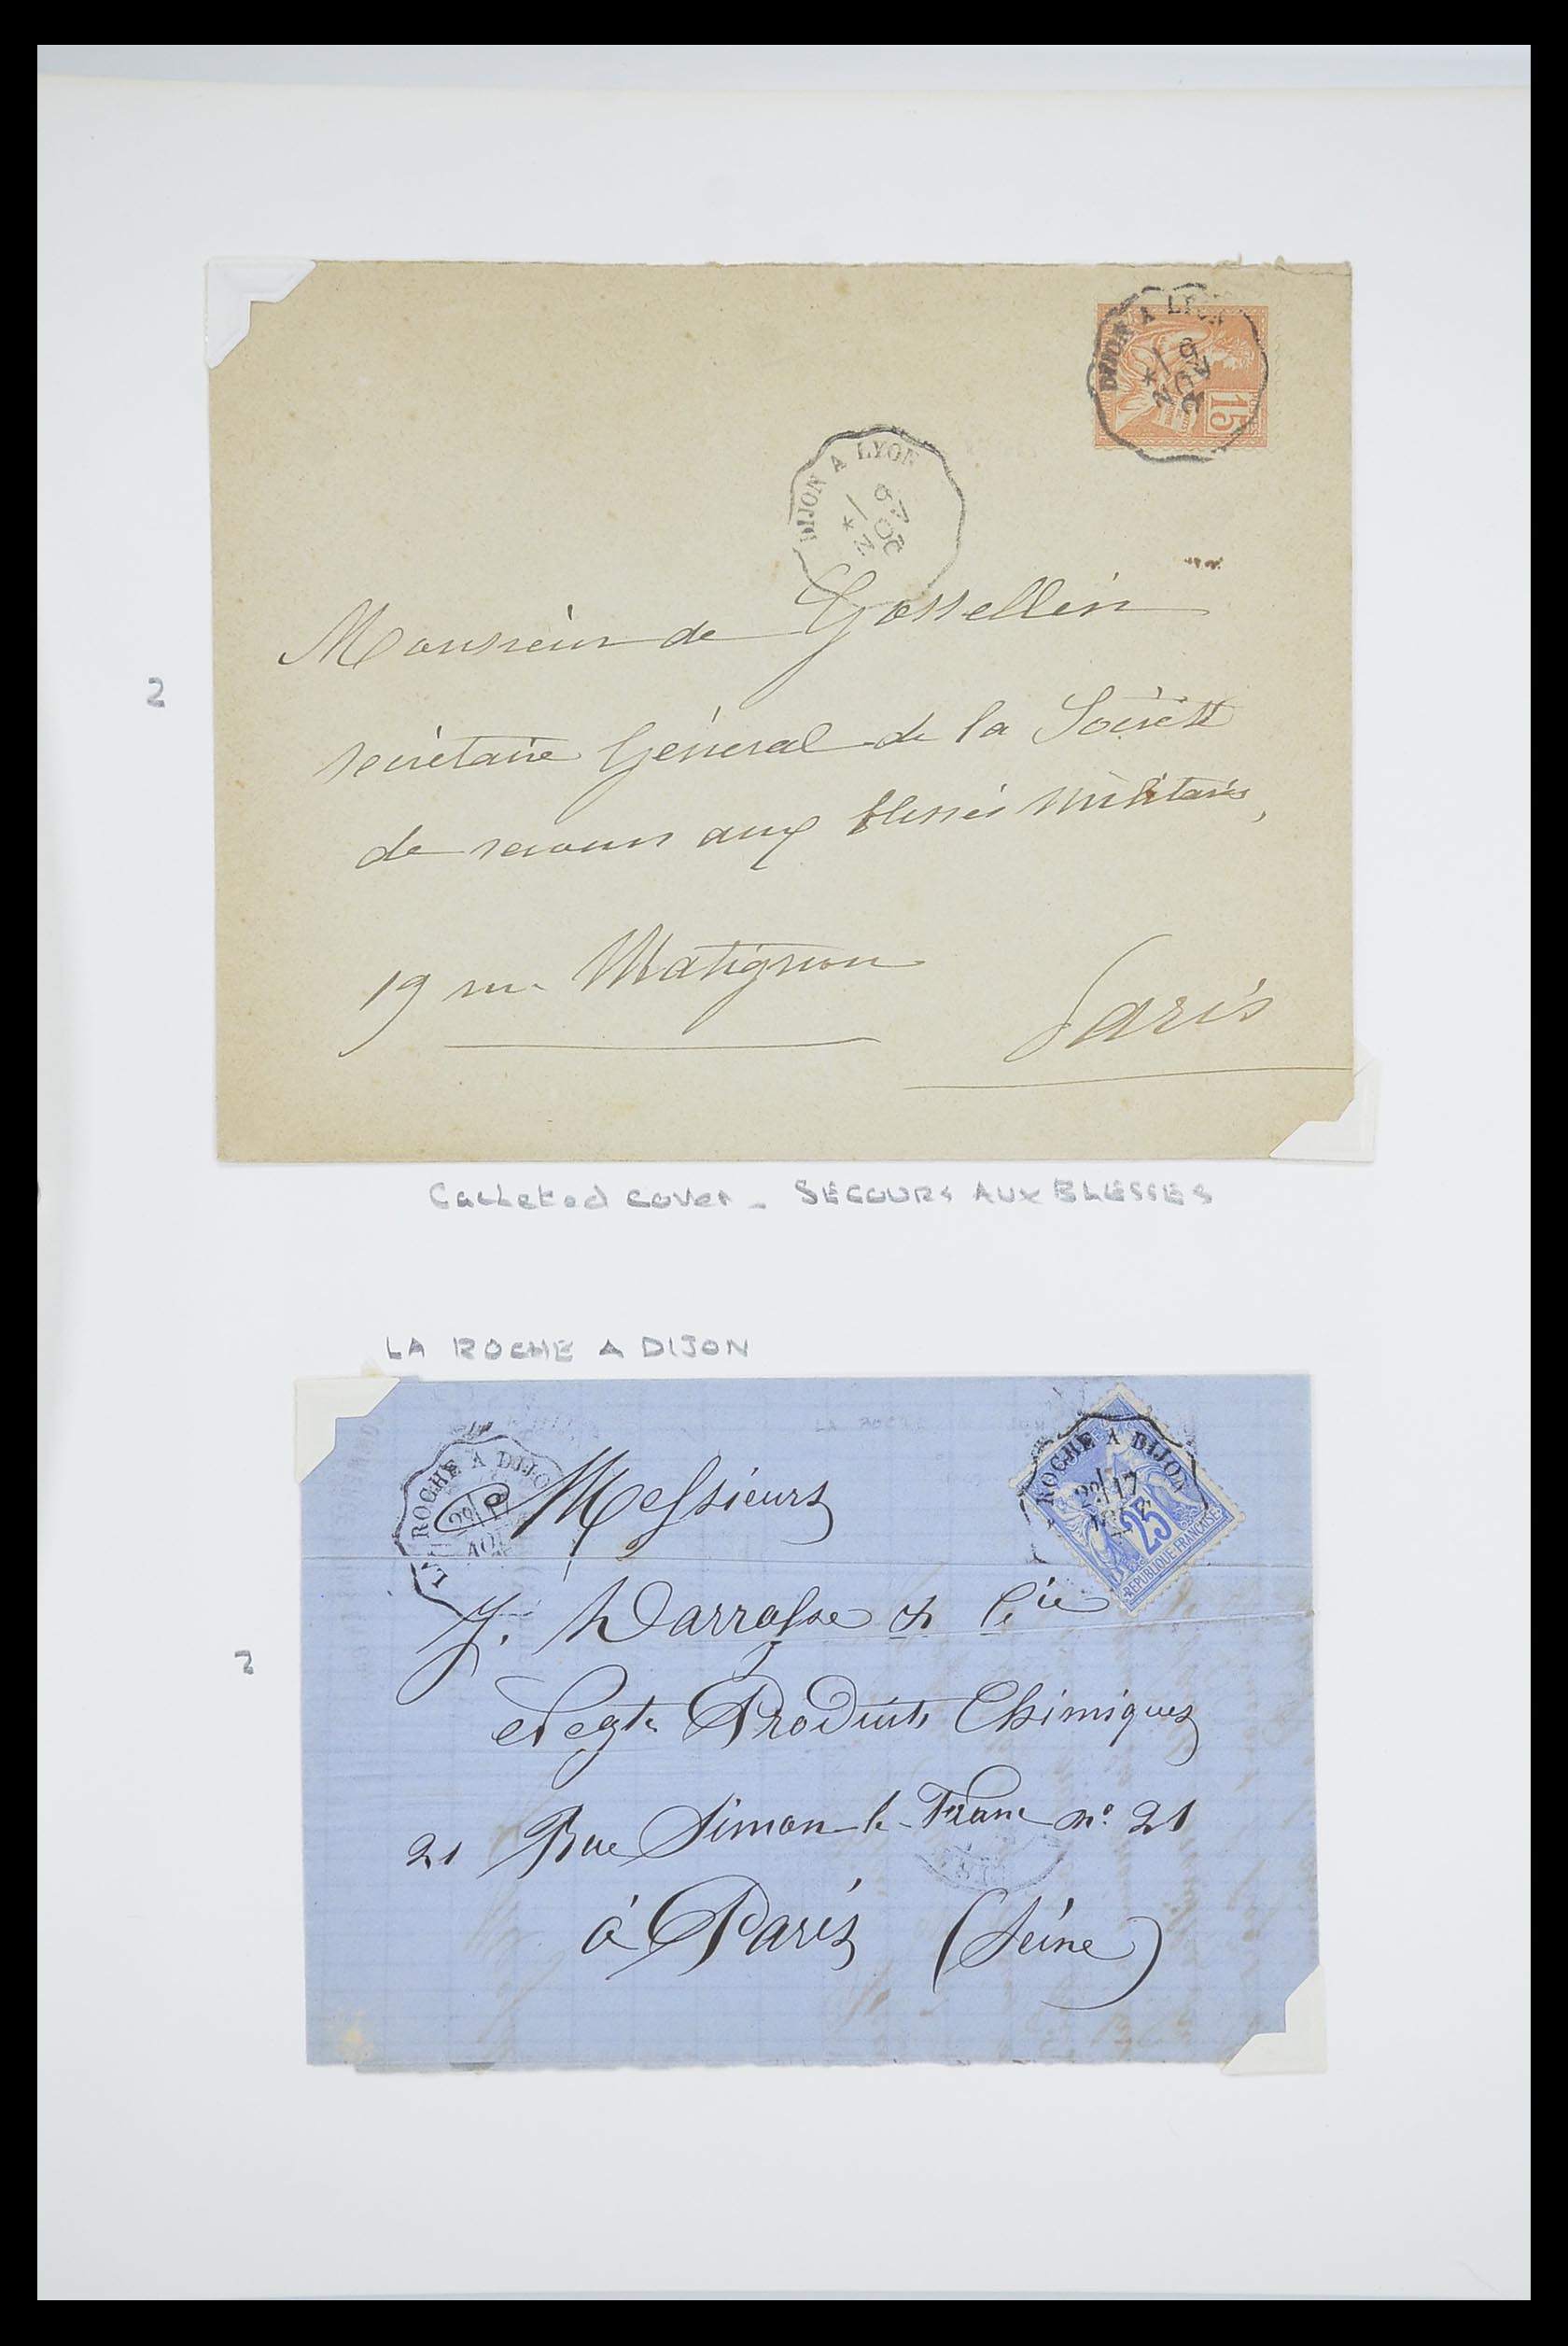 DIJON A LYON
15
DIJON A LYON
Monsieur de Gossellin
secrétaire Général de la Société
de secours aux blessés militaires,
2
19 rue Matignon
Paris
Cacheted cover - SECOURS AUX BLESSES
LA ROCHE A DIJON
LA ROCHE A DIJO
29/17
AOU
ROCHE A DIJON
29/17
25
REPUBLIQUE FRANCAISE
Messieurs
J. Darrasse & Cie
2
Negts Produits Chimiques
21 Rue Simon-le-Franc no. 21
à Paris (Seine)